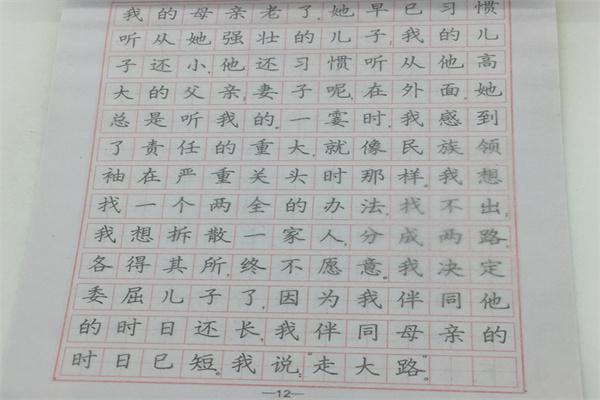 我的母亲老了,她早已习惯
听从她强壮的儿子,我的儿
子还小,他还习惯听从他高
大的父亲,妻子呢,在外面,她
总是听我的。一霎时,我感到
了责任的重大,就像民族领
袖在严重关头时那样。我想
找一个两全的办法,找不出,
我想拆散一家人,分成两路,
各得其所,终不愿意。我决定
委屈儿子了,因为我伴同他
的时日还长,我伴同母亲的
时日已短。我说:"走大路。"
—12—